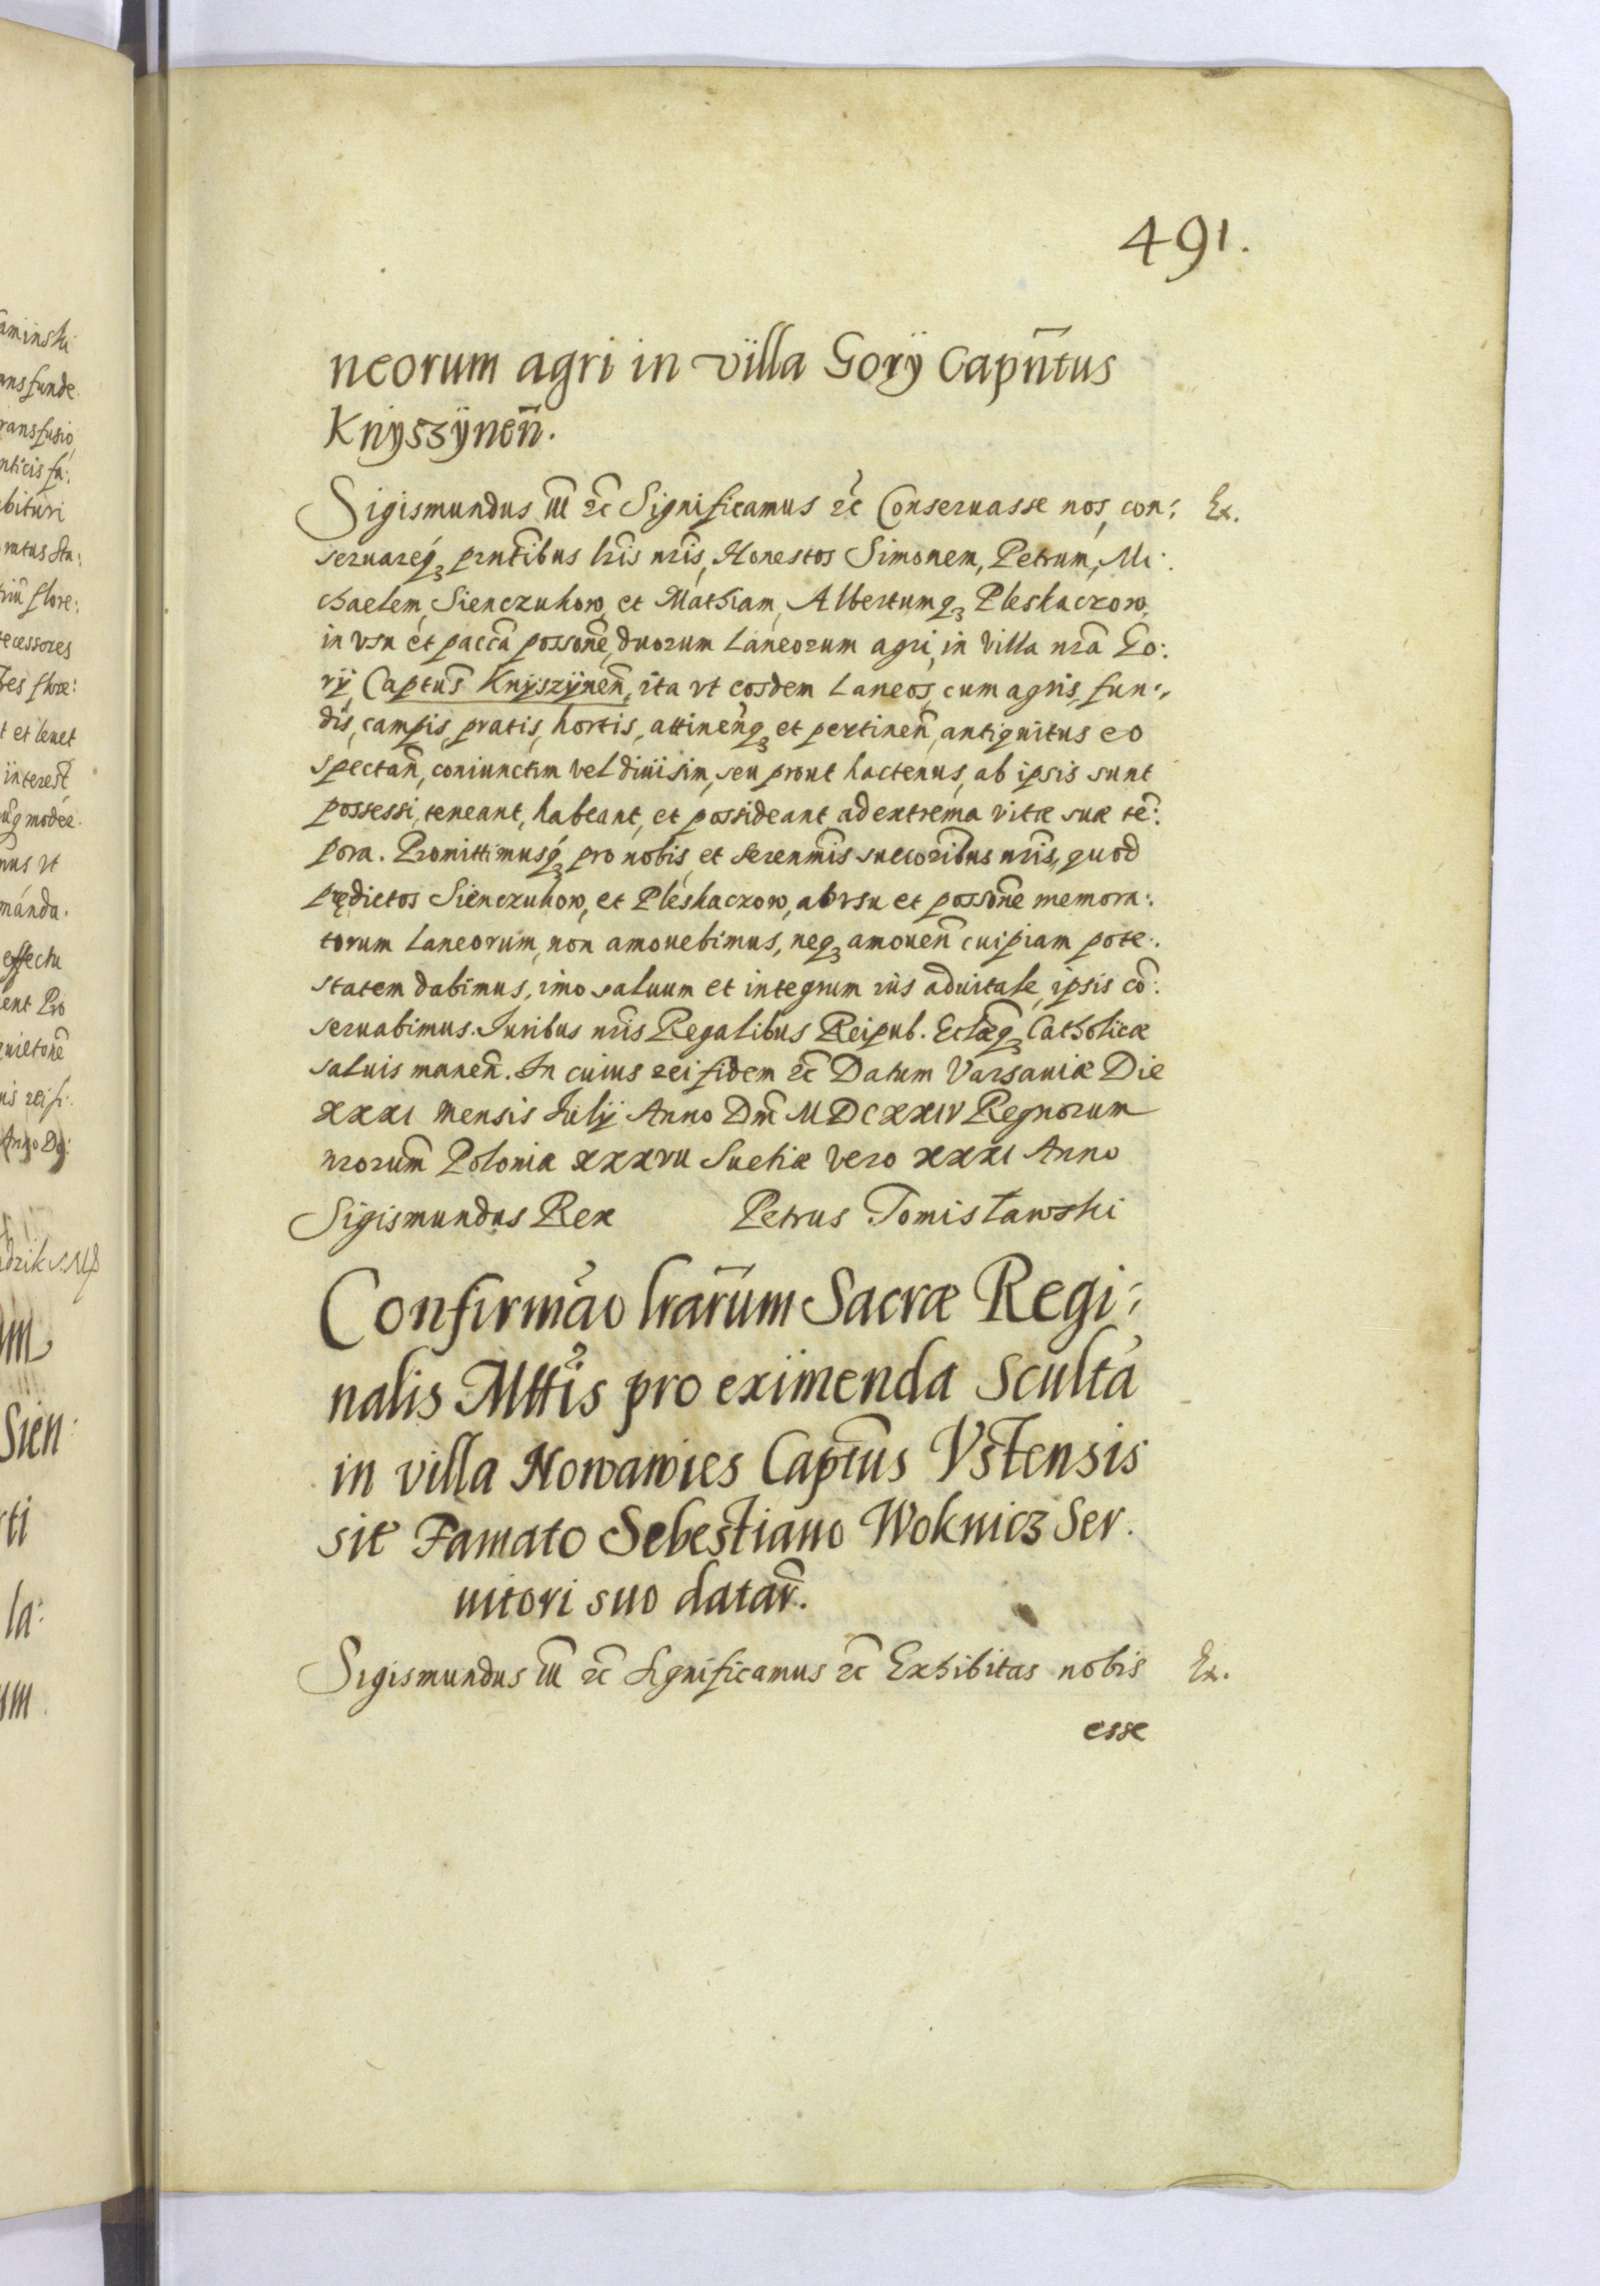 491.
neorum agri in villa Gorÿ Capñtus
Knÿszÿneñ.
Sigismundus III ꝛc Significamus ꝛc Conseruasse nos, con:
Ex.
seruareq̃ prñtibus lris nris, Honestos Simonem, Petrum, Mi:
chaelem, Sienczukow, et Mathiam, Albertumq̃ Pleskaczow,
in vsu et paccã possone, duorum Laneorum agri, in Villa nrã Go:
rÿ, Captus Knÿszÿneñ, ita vt eosdem Laneos, cum agris, fun:
dis, campis, pratis, hortis, attineñq̃ et pertineñ, antiquitus eo
spectañ, coniunctim vel diuisim, seu prout hactenus, ab ipsis sunt
possessi, teneant, habeant, et possideant ad extrema vitæ suæ tẽ:
pora. Promittimusq̃ pro nobis, et serenmis succoribus nris, quod
prędictos Sienczukow, et Pleskaczow, ab vsu et possone memora:
torum Laneorum, non amouebimus, neq̃ amoueñ cuipiam pote:
statem dabimus, imo saluum et integrum ius aduitale, ipsis cõ:
seruabimus. Juribus nris Regalibus Reipub. Eclæq̃ Catholicæ
saluis maneñ. In cuius rei fidem ꝛc Datum Varsauiæ Die
XXXI mensis Julij Anno Dni MDCXXIV Regnorum
nrorum Poloniæ XXXVII Suetiæ vero XXXI Anno
Sigismundus Rex Petrus Tomisławski
Confirmão lrarum Sacræ Regi:
nalis Mttis pro eximenda Scultã
in villa Nowawies Captus Vstensis
sit Famato Sebestiano Woknicz Ser:
uitori suo datar̃.
Sigismundus III ꝛc Significamus ꝛc Exhibitas nobis
Ex.
esse